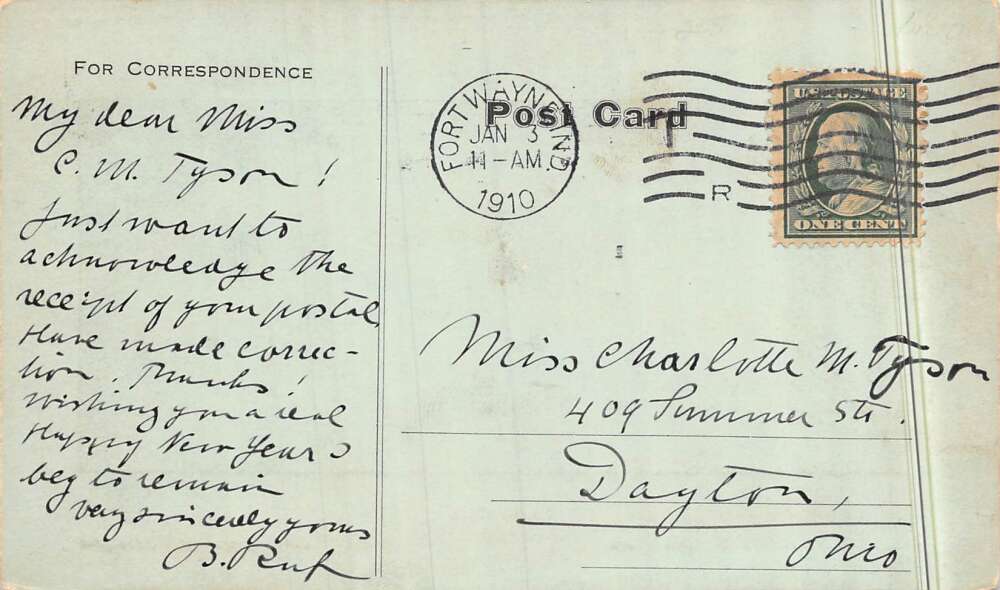 FOR CORRESPONDENCE
My dear Miss
C. M. Tyson!
Just want to
acknowledge the
receipt of your postal,
Have made correc-
tion. Thanks!
Wishing you a real
Happy New Years
beg to remain
very sincerely yours
B. Ruf
Post Card
FORT WAYNE IND
JAN 3
11-AM
1910
R
U.S. POSTAGE
ONE CENT
Miss Charlotte M. Tyson
409 Summer Str.
Dayton,
Ohio